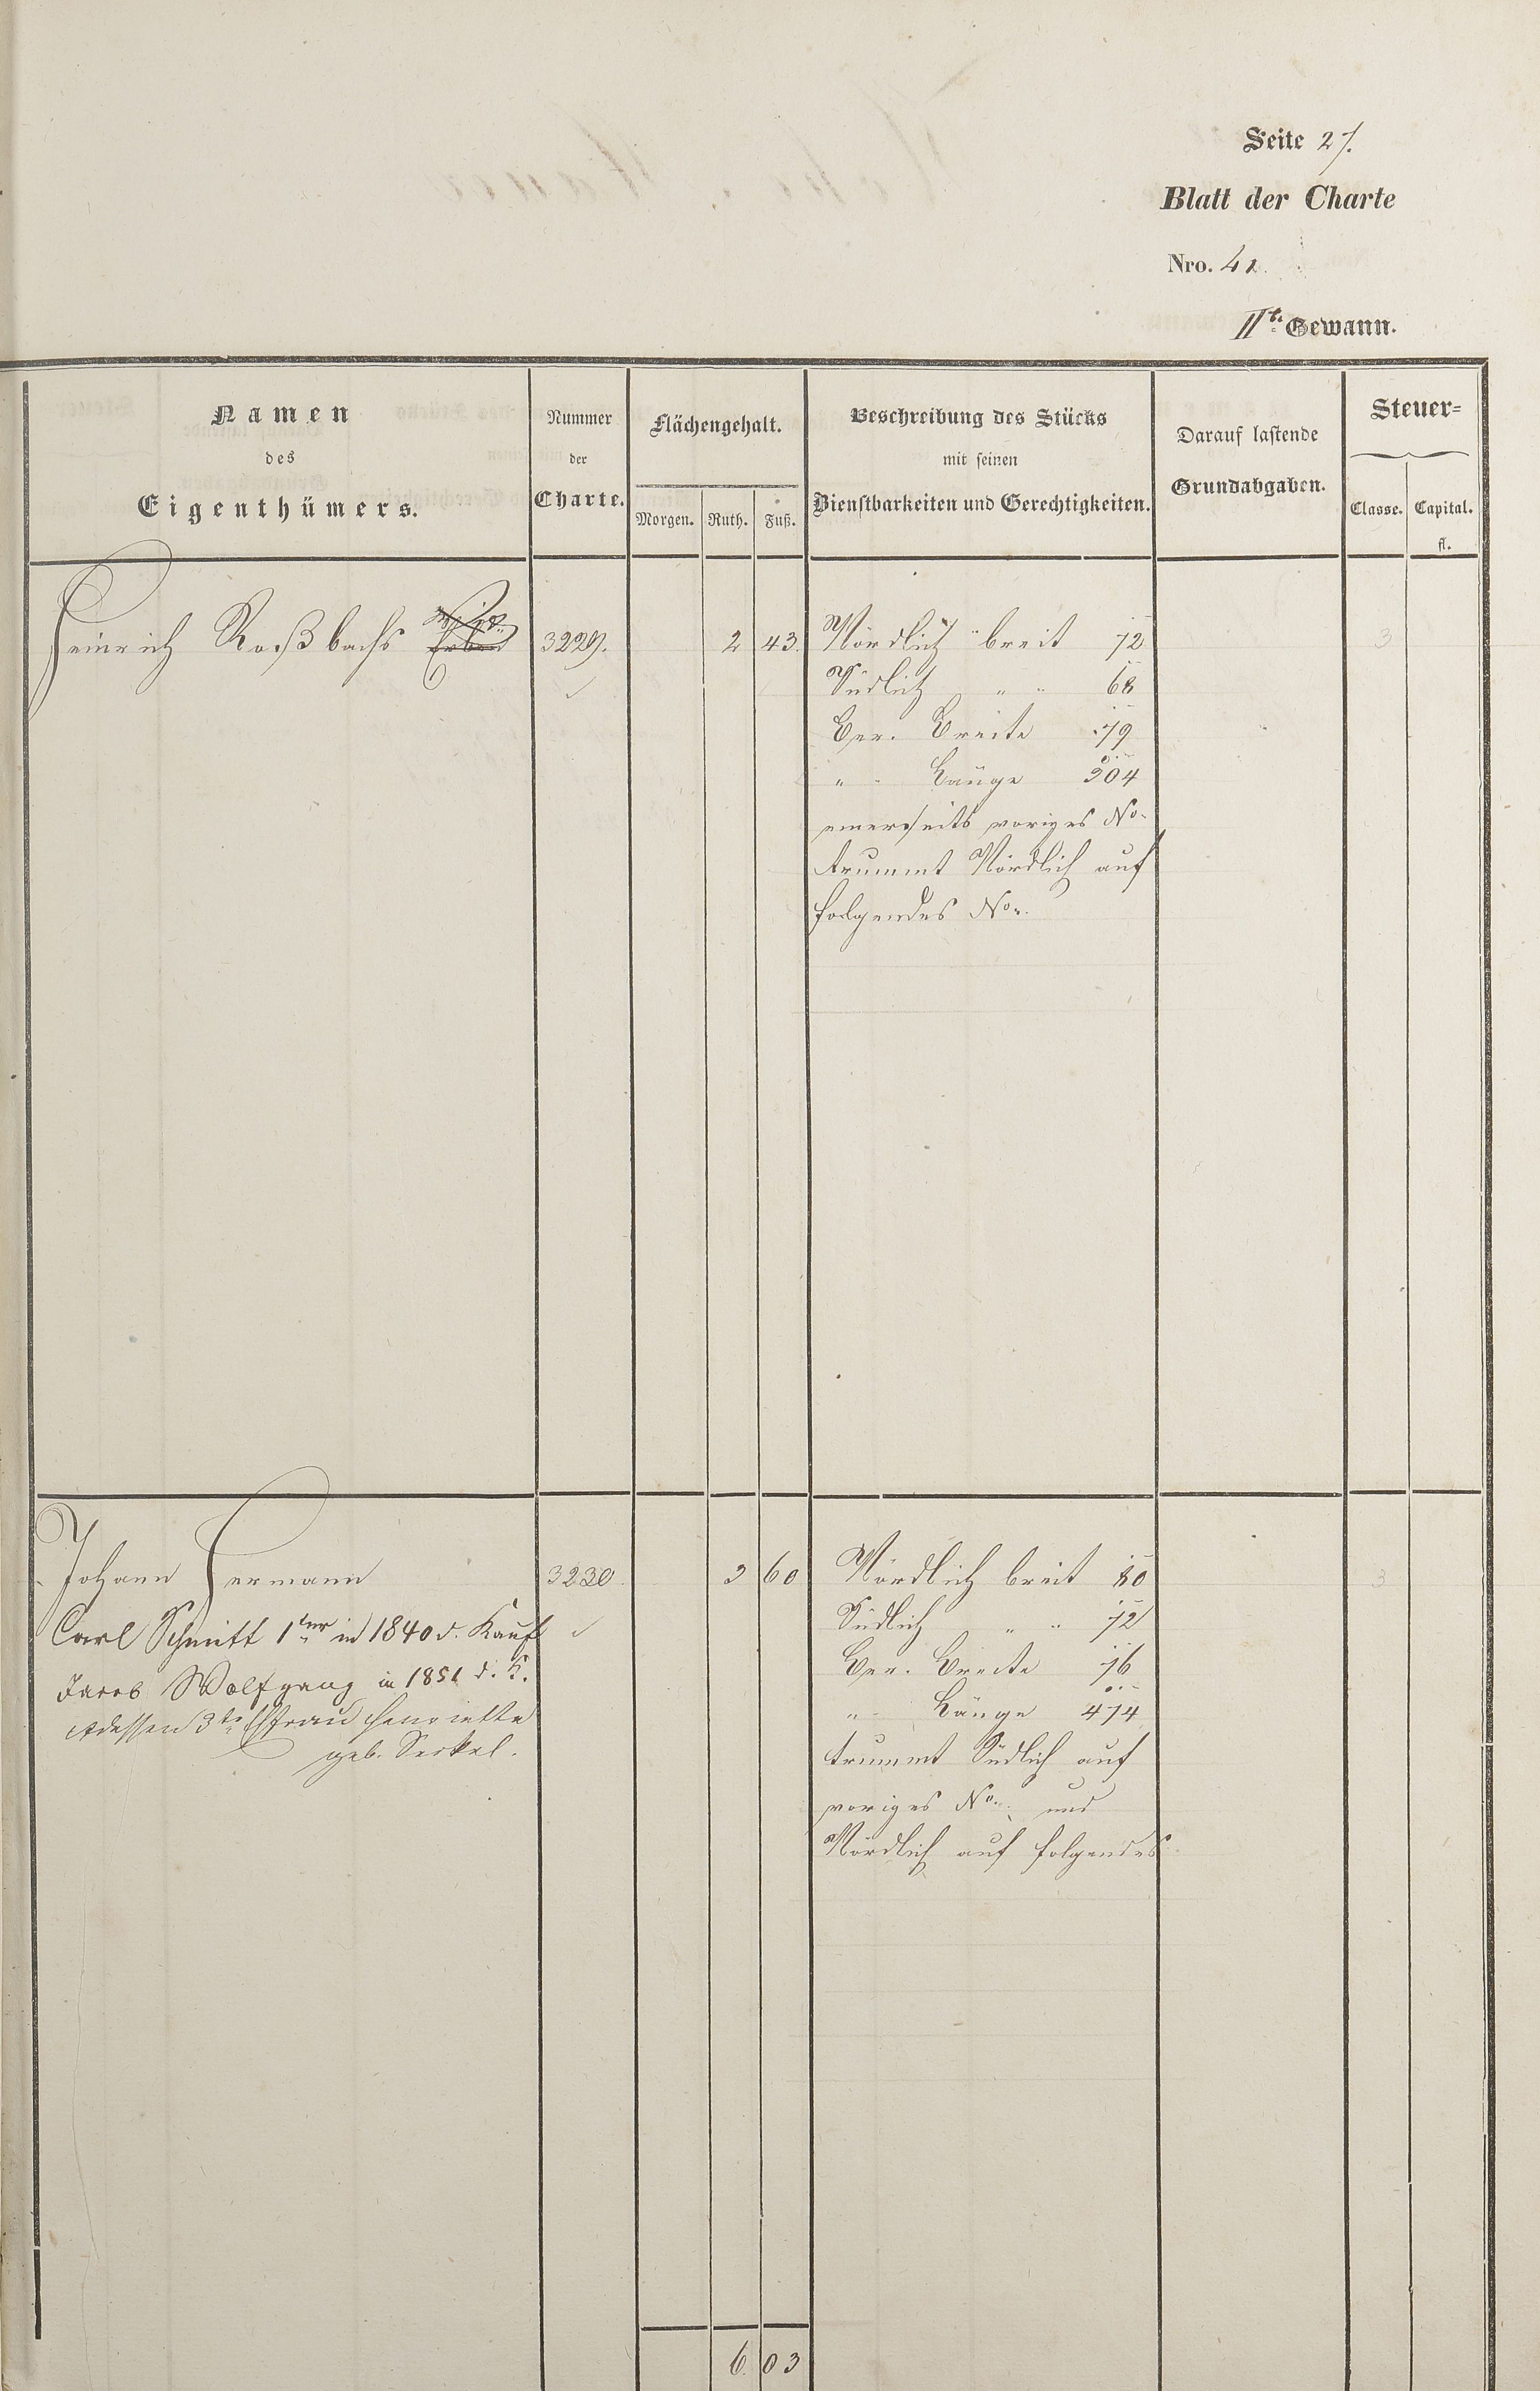 Seite 27.
Blatt der Charte
Nro. 41.
IIte Gewann.
Namen
des
Eigenthümers.
Nummer
der
Charte.
Flächengehalt.
Morgen. Ruth. Fuß.
Beschreibung des Stücks
mit seinen
Dienstbarkeiten und Gerechtigkeiten.
Darauf lastende
Grundabgaben.
Steuer=
Classe. Capital.
fl.
Heinrich Roßbachs Erben 3229. 2 43. Nördlich breit 72 3
Südlich " " 68
Ger. Breite 79
" Länge 304
einerseits voriges No.
trummt Nördlich auf
folgendes No.
Johann Hermann 3230 3 60 Nördlich breit 80 3
Carl Schmitt 1ter in 1840 d. Kauf Südlich " " 72
Jacob Wolfgang in 1851 d. K. Ger. Breite 76
dessen 3te Ehfrau Henriette " Länge 474
geb. trummt Südlich auf
voriges No. und
Nördlich auf folgendes
6. 03